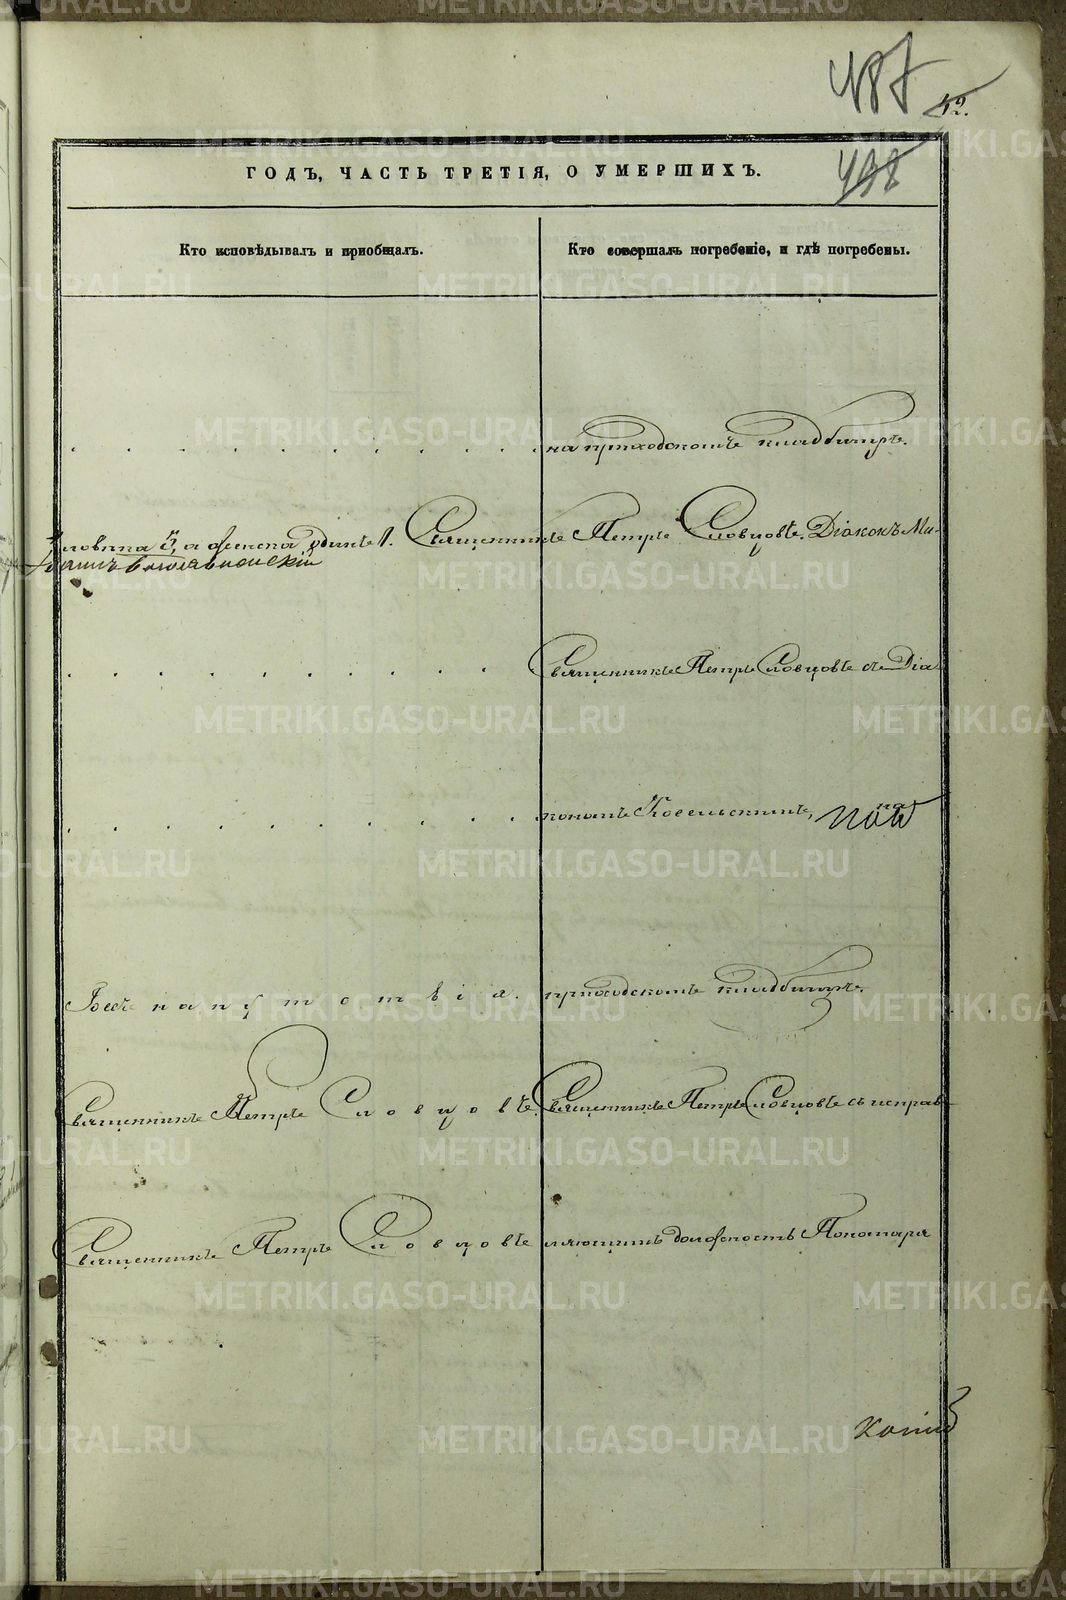 487
42.
498
ГОДЪ, ЧАСТЬ ТРЕТІЯ, О УМЕРШИХЪ.
Кто исповѣдывалъ и приобщалъ.
Кто совершалъ погребеніе, и гдѣ погребены.
на приходскомъ кладбищѣ.
Священникъ Петръ Словцовъ, Діаконъ
Священникъ Петръ Словцовъ съ Діа
кономъ на
Безъ напутствія. приходскомъ кладбищѣ.
Священникъ Петръ Словцовъ. Священникъ Петръ Словцовъ съ исправ
Священникъ Петръ Словцовъ ляющимъ должность Пономаря
METRIKI.GASO-URAL.RU